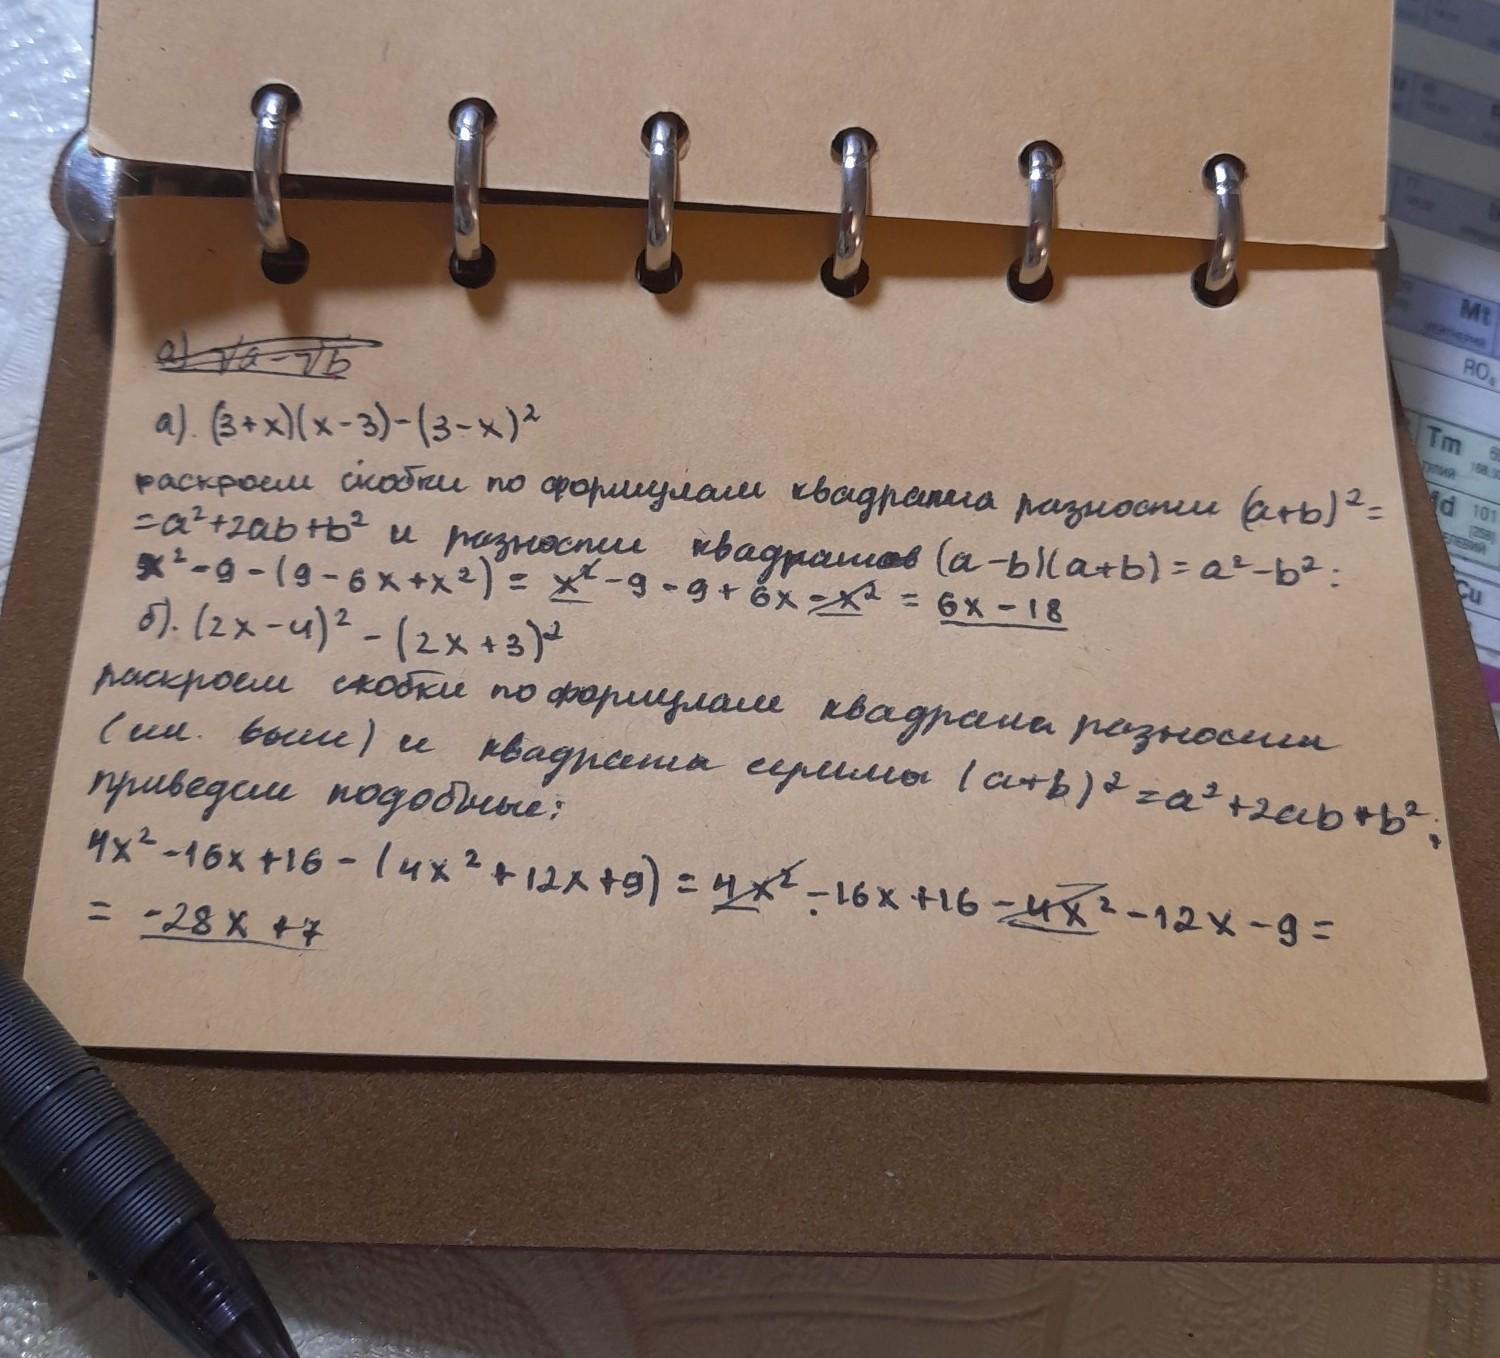 а) √a-√b
а). (3+x)(x-3)-(3-x)²
раскроем скобки по формулам квадрата разности (a+b)²=
=a²+2ab+b² и разности квадратов (a-b)(a+b)=a²-b²:
x²-9-(9-6x+x²)= x²-9-9+6x-x² = 6x-18
б). (2x-4)²-(2x+3)²
раскроем скобки по формулам квадрата разности
(см. выше) и квадрата суммы (a+b)²=a²+2ab+b²;
приведем подобные:
4x²-16x+16-(4x²+12x+9)=4x²-16x+16-4x²-12x-9=
= -28x+7
Mt
RO₄
Tm
Md 101
Cu